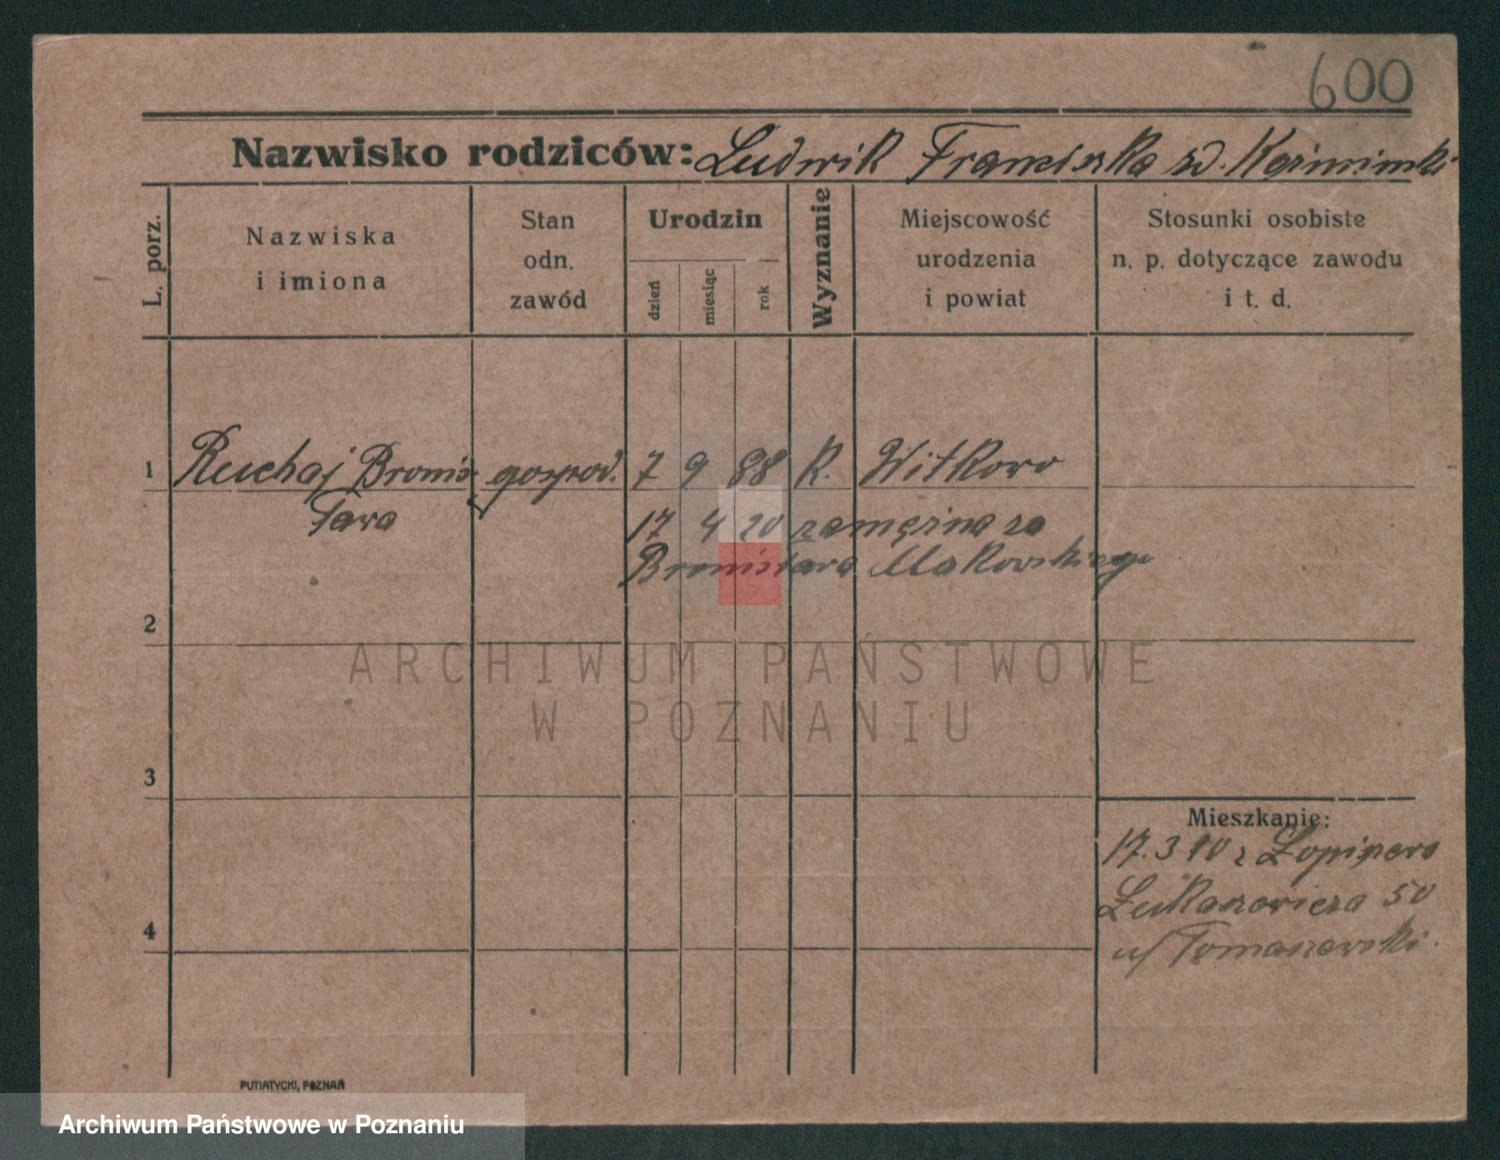 600
Nazwisko rodziców: Ludwik Franciszka zd. Kazimirski
L. porz.
Nazwiska
i imiona
Stan
odn.
zawód
Urodzin
dzień
miesiąc
rok
Wyznanie
Miejscowość
urodzenia
i powiat
Stosunki osobiste
n. p. dotyczące zawodu
i t. d.
1 Ruchaj Broni- gospod. 7 9 88 K. Witkowo
sława 17 4 20 zamężna za
Bronisława Makowskiego
2
3
4
Mieszkanie:
17.3 10 z
Łukaszewicza 50
u/ Tomaszewski.
PUTIATYCKI, POZNAŃ
ARCHIWUM PAŃSTWOWE
W POZNANIU
Archiwum Państwowe w Poznaniu